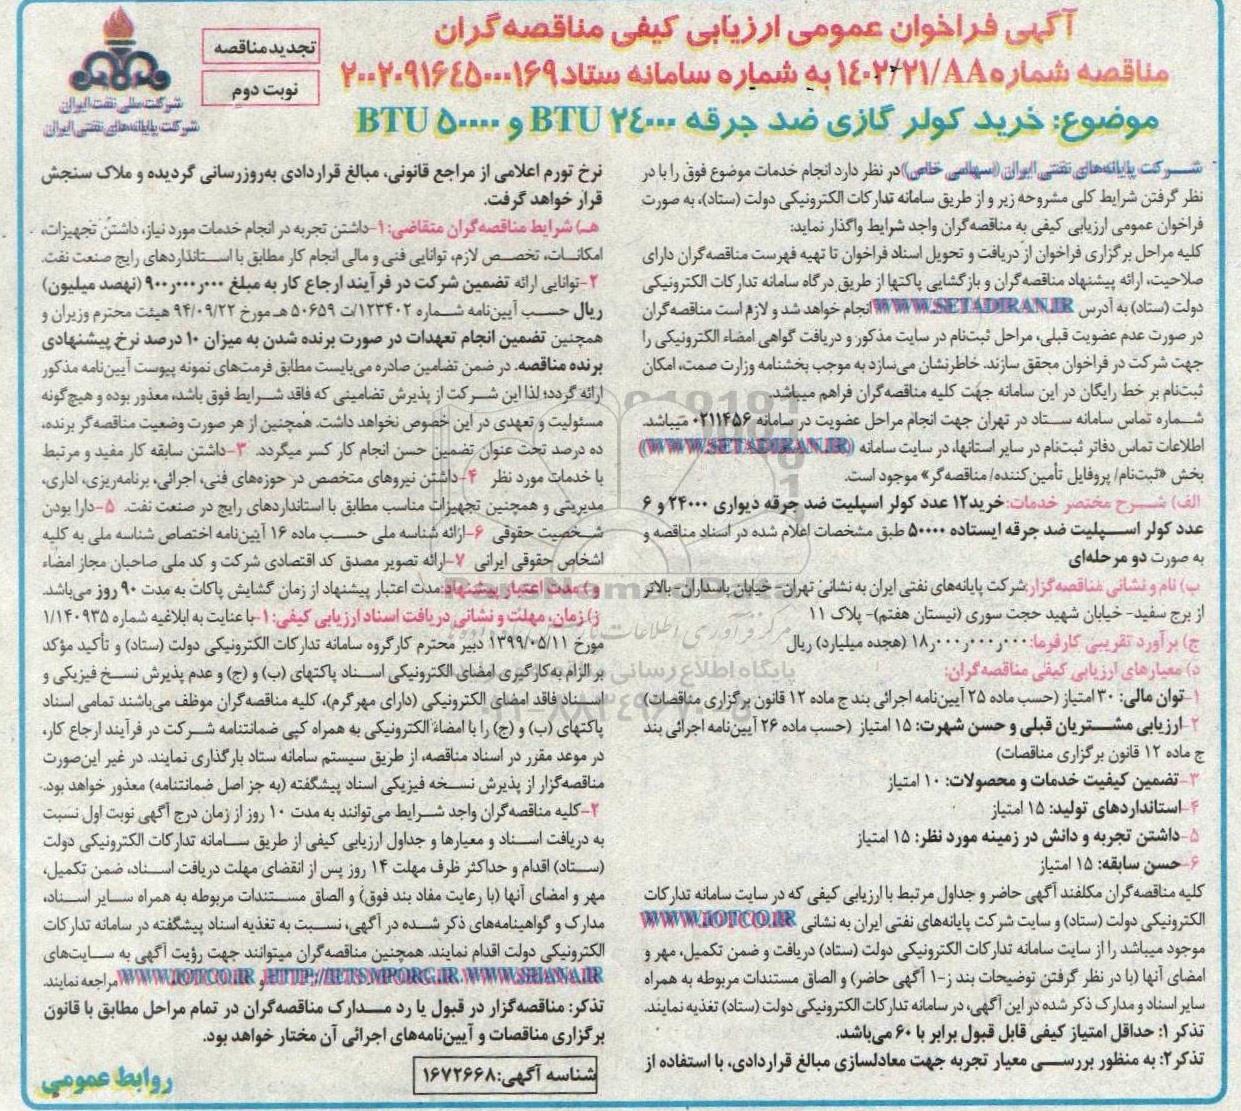 آگهی فراخوان عمومی ارزیابی کیفی مناقصه‌گران
مناقصه شماره ۱۴۰۲/۲۱/AA به شماره سامانه ستاد ۲۰۰۲۰۹۱۶۴۵۰۰۰۱۶۹
موضوع: خرید کولر گازی ضد جرقه BTU ۲۴۰۰۰ و BTU ۵۰۰۰۰
تجدید مناقصه
نوبت دوم
شرکت ملی نفت ایران
شرکت پایانه‌های نفتی ایران
شرکت پایانه‌های نفتی ایران (سهامی خاص) در نظر دارد انجام خدمات موضوع فوق را با در
نظر گرفتن شرایط کلی مشروحه زیر و از طریق سامانه تدارکات الکترونیکی دولت (ستاد)، به صورت
فراخوان عمومی ارزیابی کیفی به مناقصه‌گران واجد شرایط واگذار نماید:
کلیه مراحل برگزاری فراخوان از دریافت و تحویل اسناد فراخوان تا تهیه فهرست مناقصه‌گران دارای
صلاحیت، ارائه پیشنهاد مناقصه‌گران و بازگشایی پاکتها از طریق درگاه سامانه تدارکات الکترونیکی
دولت (ستاد) به آدرس WWW.SETADIRAN.IR انجام خواهد شد و لازم است مناقصه‌گران
در صورت عدم عضویت قبلی، مراحل ثبت‌نام در سایت مذکور و دریافت گواهی امضاء الکترونیکی را
جهت شرکت در فراخوان محقق سازند. خاطرنشان می‌سازد به موجب بخشنامه وزارت صمت، امکان
ثبت‌نام بر خط رایگان در این سامانه جهت کلیه مناقصه‌گران فراهم میباشد.
شماره تماس سامانه ستاد در تهران جهت انجام مراحل عضویت در سامانه ۰۲۱۱۴۵۶ میباشد.
اطلاعات تماس دفاتر ثبت‌نام در سایر استانها، در سایت سامانه (WWW.SETADIRAN.IR)
بخش «ثبت‌نام/ پروفایل تأمین‌کننده/ مناقصه‌گر» موجود است.
الف) شرح مختصر خدمات: خرید ۱۲ عدد کولر اسپلیت ضد جرقه دیواری ۲۴۰۰۰ و ۶
عدد کولر اسپلیت ضد جرقه ایستاده ۵۰۰۰۰ طبق مشخصات اعلام شده در اسناد مناقصه و
به صورت دو مرحله‌ای
ب) نام و نشانی مناقصه‌گزار: شرکت پایانه‌های نفتی ایران به نشانی تهران- خیابان پاسداران- بالاتر
از برج سفید- خیابان شهید حجت سوری (نیستان هفتم)- پلاک ۱۱
ج) برآورد تقریبی کارفرما: ۱۸٫۰۰۰٫۰۰۰٫۰۰۰ (هجده میلیارد) ریال
د) معیارهای ارزیابی کیفی مناقصه‌گران:
۱-توان مالی: ۳۰ امتیاز (حسب ماده ۲۵ آیین‌نامه اجرائی بند ج ماده ۱۲ قانون برگزاری مناقصات)
۲-ارزیابی مشتریان قبلی و حسن شهرت: ۱۵ امتیاز (حسب ماده ۲۶ آیین‌نامه اجرائی بند
ج ماده ۱۲ قانون برگزاری مناقصات)
۳-تضمین کیفیت خدمات و محصولات: ۱۰ امتیاز
۴-استانداردهای تولید: ۱۵ امتیاز
۵-داشتن تجربه و دانش در زمینه مورد نظر: ۱۵ امتیاز
۶-حسن سابقه: ۱۵ امتیاز
کلیه مناقصه‌گران مکلفند آگهی حاضر و جداول مرتبط با ارزیابی کیفی که در سایت سامانه تدارکات
الکترونیکی دولت (ستاد) و سایت شرکت پایانه‌های نفتی ایران به نشانی WWW.IOTCO.IR
موجود میباشد را از سایت سامانه تدارکات الکترونیکی دولت (ستاد) دریافت و ضمن تکمیل، مهر و
امضای آنها (با در نظر گرفتن توضیحات بند ز-۱ آگهی حاضر) و الصاق مستندات مربوطه به همراه
سایر اسناد و مدارک ذکر شده در این آگهی، در سامانه تدارکات الکترونیکی دولت (ستاد) تغذیه نمایند.
تذکر ۱: حداقل امتیاز کیفی قابل قبول برابر با ۶۰ می‌باشد.
تذکر ۲: به منظور بررسی معیار تجربه جهت معادلسازی مبالغ قراردادی، با استفاده از
نرخ تورم اعلامی از مراجع قانونی، مبالغ قراردادی به‌روزرسانی گردیده و ملاک سنجش
قرار خواهد گرفت.
هـ) شرایط مناقصه‌گران متقاضی: ۱-داشتن تجربه در انجام خدمات مورد نیاز، داشتن تجهیزات،
امکانات، تخصص لازم، توانایی فنی و مالی انجام کار مطابق با استانداردهای رایج صنعت نفت.
۲-توانایی ارائه تضمین شرکت در فرآیند ارجاع کار به مبلغ ۹۰۰٫۰۰۰٫۰۰۰ (نهصد میلیون)
ریال حسب آیین‌نامه شماره ۱۲۳۴۰۲/ت ۵۰۶۵۹ هـ مورخ ۹۴/۰۹/۲۲ هیئت محترم وزیران و
همچنین تضمین انجام تعهدات در صورت برنده شدن به میزان ۱۰ درصد نرخ پیشنهادی
برنده مناقصه. در ضمن تضامین صادره می‌بایست مطابق فرمت‌های نمونه پیوست آیین‌نامه مذکور
ارائه گردد؛ لذا این شرکت از پذیرش تضامینی که فاقد شرایط فوق باشد، معذور بوده و هیچ‌گونه
مسئولیت و تعهدی در این خصوص نخواهد داشت. همچنین از هر صورت وضعیت مناقصه‌گر برنده،
ده درصد تحت عنوان تضمین حسن انجام کار کسر میگردد. ۳-داشتن سابقه کار مفید و مرتبط
با خدمات مورد نظر ۴-داشتن نیروهای متخصص در حوزه‌های فنی، اجرائی، برنامه‌ریزی، اداری،
مدیریتی و همچنین تجهیزات مناسب مطابق با استانداردهای رایج در صنعت نفت. ۵-دارا بودن
شخصیت حقوقی ۶-ارائه شناسه ملی حسب ماده ۱۶ آیین‌نامه اختصاص شناسه ملی به کلیه
اشخاص حقوقی ایرانی ۷-ارائه تصویر مصدق کد اقتصادی شرکت و کد ملی صاحبان مجاز امضاء
و) مدت اعتبار پیشنهاد: مدت اعتبار پیشنهاد از زمان گشایش پاکات به مدت ۹۰ روز می‌باشد.
ز) زمان، مهلت و نشانی دریافت اسناد ارزیابی کیفی: ۱-با عنایت به ابلاغیه شماره ۱/۱۴۰۹۳۵
مورخ ۱۳۹۹/۰۵/۱۱ دبیر محترم کارگروه سامانه تدارکات الکترونیکی دولت (ستاد) و تأکید مؤکد
بر الزام به‌کارگیری امضای الکترونیکی اسناد پاکتهای (ب) و (ج) و عدم پذیرش نسخ فیزیکی و
اسناد فاقد امضای الکترونیکی (دارای مهر گرم)، کلیه مناقصه‌گران موظف می‌باشند تمامی اسناد
پاکتهای (ب) و (ج) را با امضاء الکترونیکی به همراه کپی ضمانتنامه شرکت در فرآیند ارجاع کار،
در موعد مقرر در اسناد مناقصه، از طریق سیستم سامانه ستاد بارگذاری نمایند. در غیر این‌صورت
مناقصه‌گزار از پذیرش نسخه فیزیکی اسناد پیشگفته (به جز اصل ضمانتنامه) معذور خواهد بود.
۲-کلیه مناقصه‌گران واجد شرایط می‌توانند به مدت ۱۰ روز از زمان درج آگهی نوبت اول نسبت
به دریافت اسناد و معیارها و جداول ارزیابی کیفی از طریق سامانه تدارکات الکترونیکی دولت
(ستاد) اقدام و حداکثر ظرف مهلت ۱۴ روز پس از انقضای مهلت دریافت اسناد، ضمن تکمیل،
مهر و امضای آنها (با رعایت مفاد بند فوق) و الصاق مستندات مربوطه به همراه سایر اسناد،
مدارک و گواهینامه‌های ذکر شده در آگهی، نسبت به تغذیه اسناد پیشگفته در سامانه تدارکات
الکترونیکی دولت اقدام نمایند. همچنین مناقصه‌گران میتوانند جهت رؤیت آگهی به سایت‌های
WWW.SHANA.IR، HTTP://IETS.MPORG.IR و WWW.IOTCO.IR مراجعه نمایند.
تذکر: مناقصه‌گزار در قبول یا رد مدارک مناقصه‌گران در تمام مراحل مطابق با قانون
برگزاری مناقصات و آیین‌نامه‌های اجرائی آن مختار خواهد بود.
شناسه آگهی: ۱۶۷۲۶۶۸
روابط عمومی